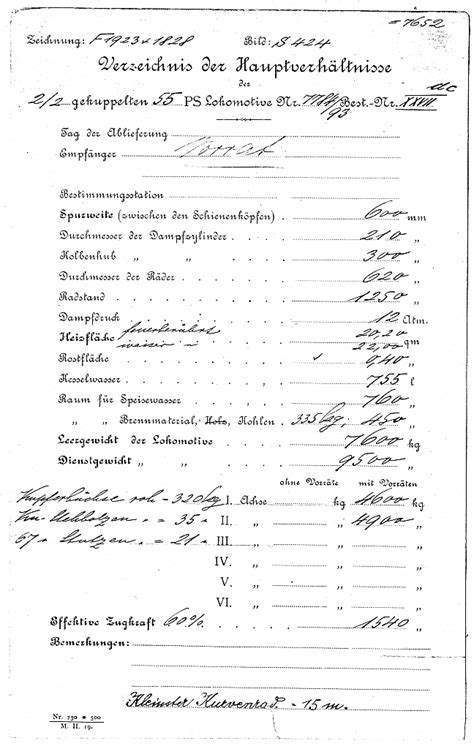 = 7652
Zeichnung: F 1923 x 1828 Bild: S 424
Verzeichnis der Hauptverhältnisse
der
2/2 gekuppelten 55 PS Lokomotive Nr. 7784/93 Best.-Nr. XXVII dc
Tag der Ablieferung
Empfänger Vorrat
Bestimmungsstation
Spurweite (zwischen den Schienenköpfen) . 600 mm
Durchmesser der Dampfzylinder . . . . 210 „
Kolbenhub „ „ . . . . 300 „
Durchmesser der Räder . . . . 620 „
Radstand . . . . 1250 „
Dampfdruck . . . . 12 Atm.
Heizfläche feuerberührt . . . . 20,20
wasser „ . . . . 22,00 qm
Rostfläche . . . . 0,40 „
Kesselwasser . . . . 755 l
Raum für Speisewasser . . . . 760 „
„ „ Brennmaterial, Holz, Kohlen . 335 kg, 450 „
Leergewicht der Lokomotive . . . . 7600 kg
Dienstgewicht „ „ . . . . 9500 „
ohne Vorräte mit Vorräten
Kupferbüchse roh - 320 kg I. Achse kg 4600 kg
Ku-Stehbolzen = 35 „ II. „ „ 4900 „
67 „ Stutzen = 21 „ III. „ „ „
IV. „ „ „
V. „ „ „
VI. „ „ „
Effektive Zugkraft 60% . . . . 1540 „
Bemerkungen:
Kleinster Kurvenrad. - 15 m.
Nr. 730 * 500
M. H. 19.